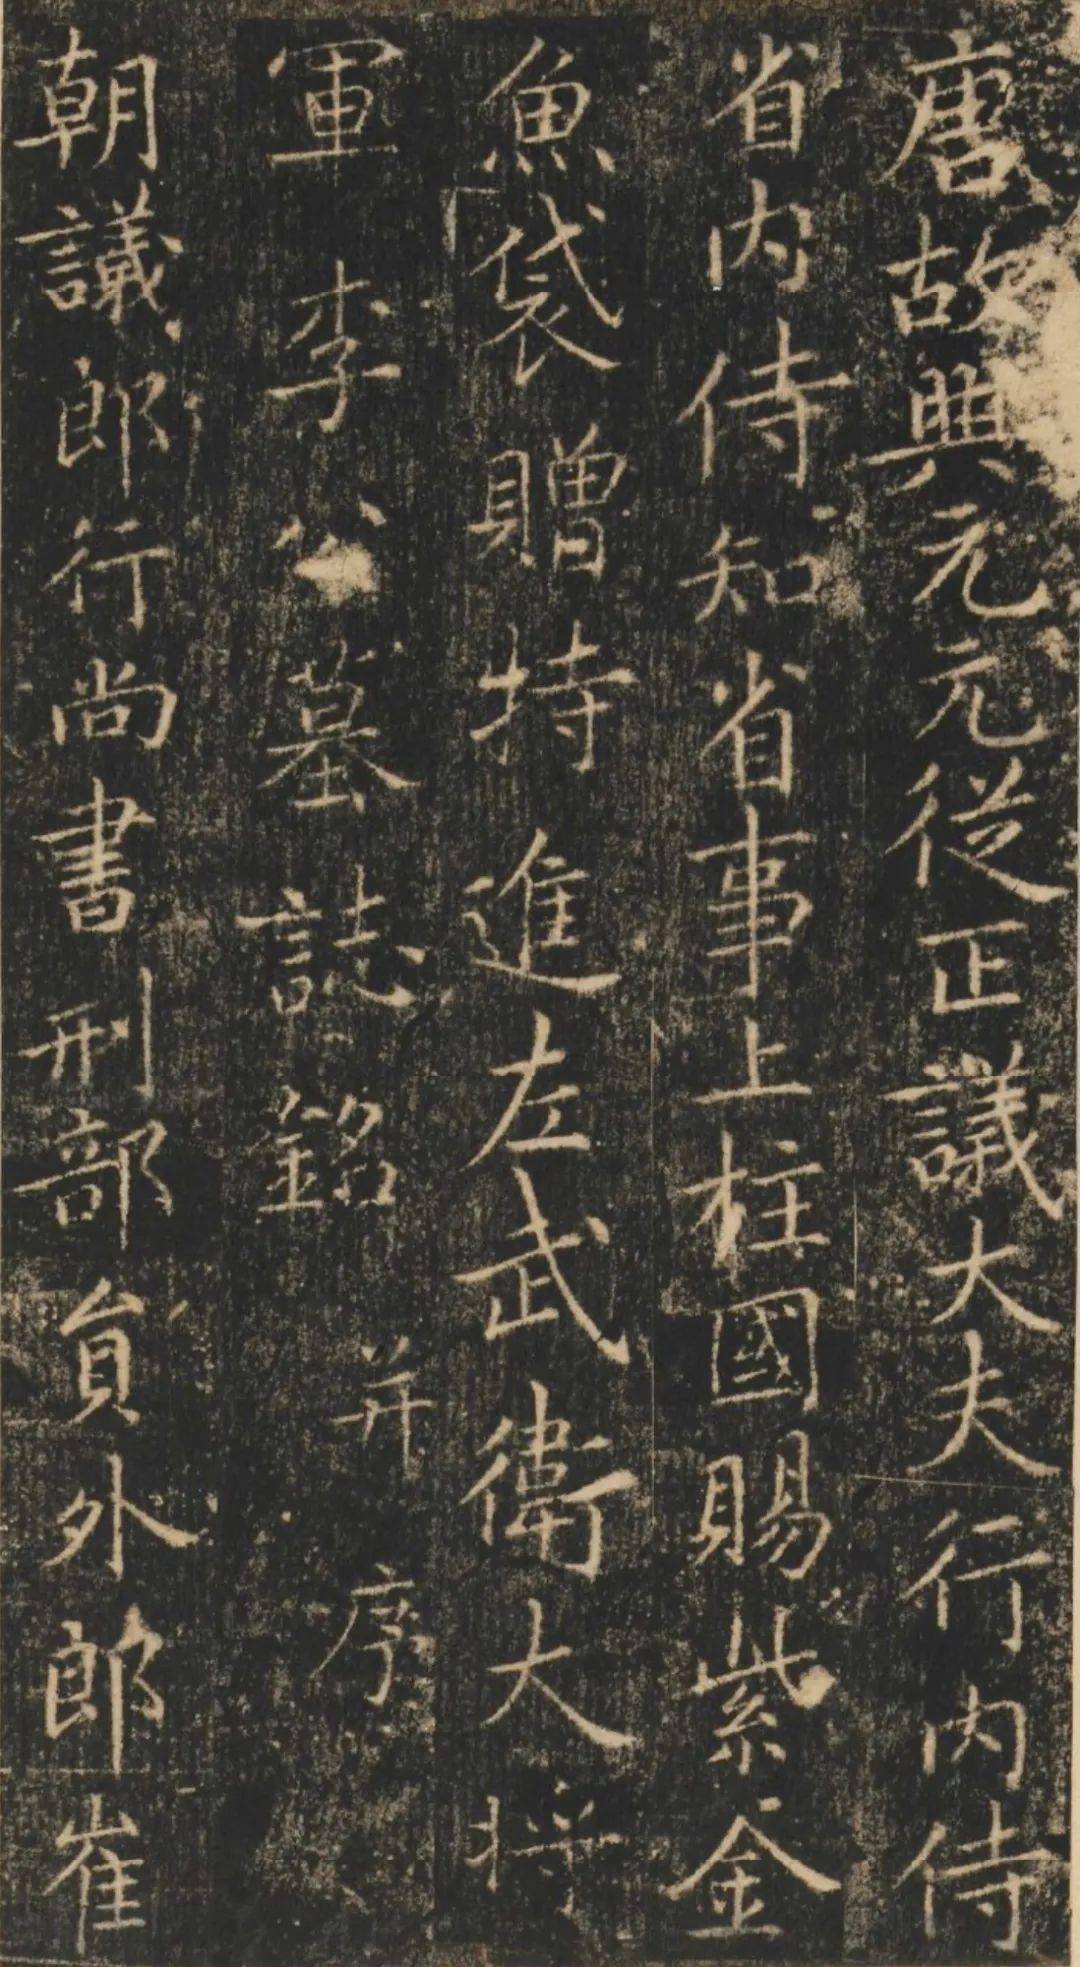 唐故興元元從正議大夫行內侍
省內侍知省事上柱國賜紫金
魚袋贈特進左武衛大將
軍李公墓誌銘并序
朝議郎行尚書刑部員外郎崔